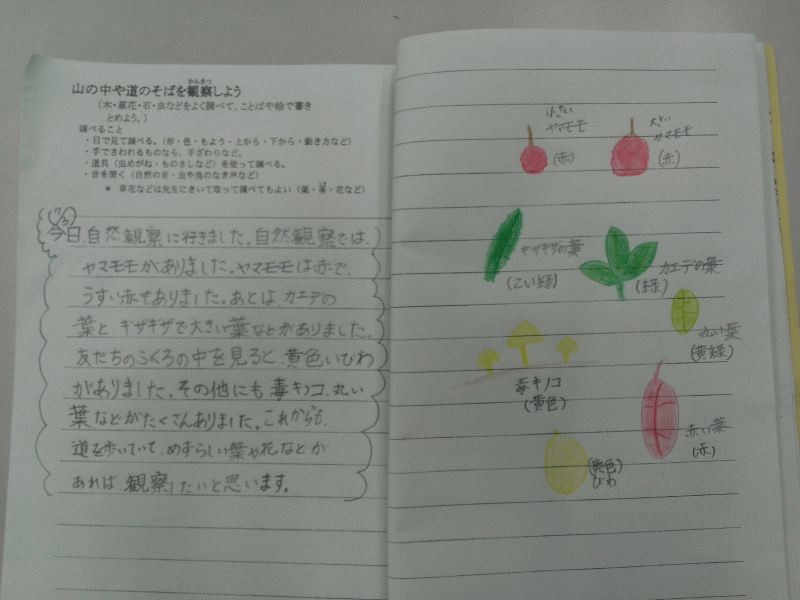 山の中や道のそばを観察しよう
かんさつ
(木・草花・石・虫などをよく調べて、ことばや絵で書き
とめよう。)
調べること
・目で見て調べる。(形・色・もよう・上から・下から・動き方など)
・手でさわれるものなら、手ざわりなど。
・道具(虫めがね・ものさしなど)を使って調べる。
・音を聞く(自然の音・虫や鳥のなき声など)
* 草花などは先生にきいて取って調べてもよい(葉・茎・花など)
7/3
今日、自然観察に行きました。自然観察では、
ヤマモモがありました。ヤマモモは赤で、
うすい赤もありました。あとは、カエデの
葉と、ギザギザで大きい葉などがありました。
友だちのふくろの中を見ると、黄色いびわ
がありました。その他にも毒キノコ、丸い
葉などがたくさんありました。これからも、
道を歩いていて、めずらしい葉や花などが
あれば、観察したいと思います。
小さい
ヤマモモ
(赤)
大きい
ヤマモモ
(赤)
ギザギザの葉
(こい緑)
カエデの葉
(緑)
丸い葉
(黄緑)
毒キノコ
(黄色)
赤い葉
(赤)
(黄色)
びわ